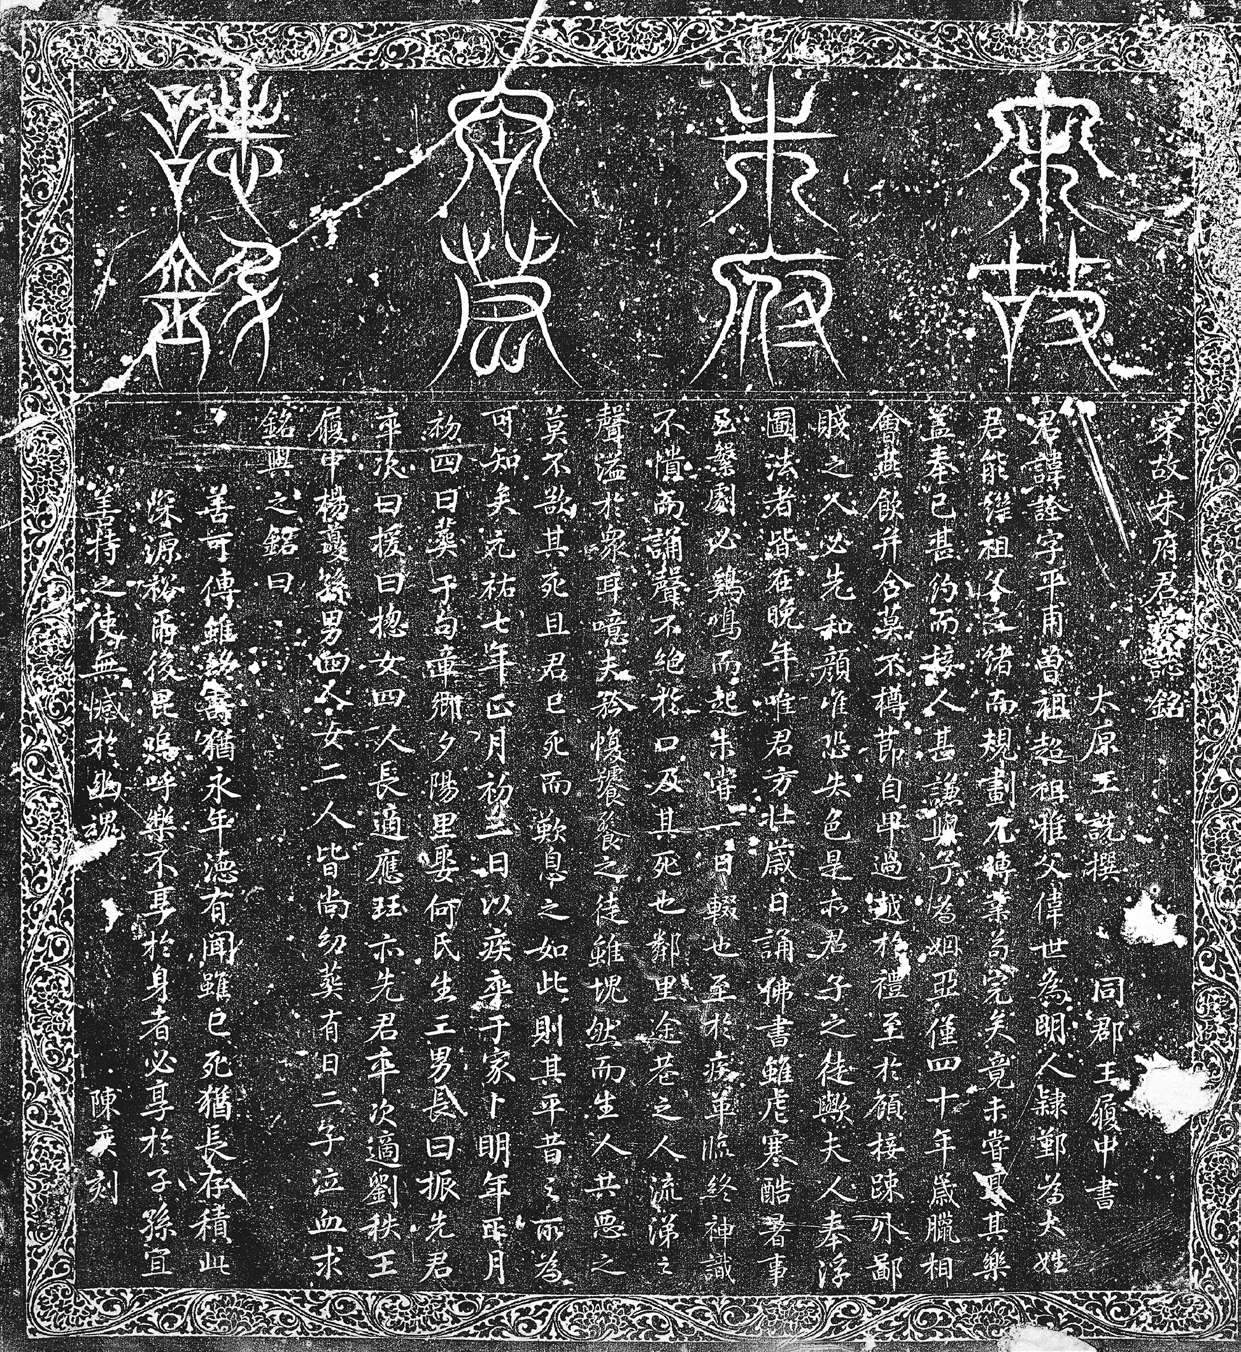 宋故
朱府
君墓
誌銘
宋故朱府君墓誌銘
太原王說撰 同郡王履中書
君諱詮字平甫曾祖超祖雅父偉世為明人隸鄞為大姓
君能繼祖父之緒而規劃尤博業苟完矣竟未嘗其樂
蓋奉已甚約而接人甚謙與予為姻亞僅四十年歲臘相
會燕飲并合莫不樽節自甲過越於禮至於顧接踈外鄙
賤之人必先和顏唯恐失色是亦君子之徒歟夫人奉浮
圖法者皆在晚年唯君方壯歲日誦佛書雖虐寒酷暑事
至繁劇必鷄鳴而起未嘗一日輟也至於疾革臨終神識
不憒而誦聲不絕於口及其死也鄰里塗巷之人流涕之
聲溢於眾耳噫夫矜愎饕餮之徒雖塊然而生人共惡之
莫不欲其死且君已死而歎息之如此則其平昔之所為
可知矣元祐七年正月初三日以疾卒于家卜明年正月
初四日葬于句章鄉夕陽里娶何氏生三男長曰振先君
卒次曰援曰摠女四人長適應珏亦先君卒次適劉秩王
履中楊邍孫男四人女二人皆尚幼葬有日二子泣血求
銘與之銘曰
善可傳雖壽猶永年德有聞雖已死猶長存積此
深源裕爾後昆嗚呼樂不享於身者必享於子孫宜
善持之使無憾於幽魂 陳奕刻